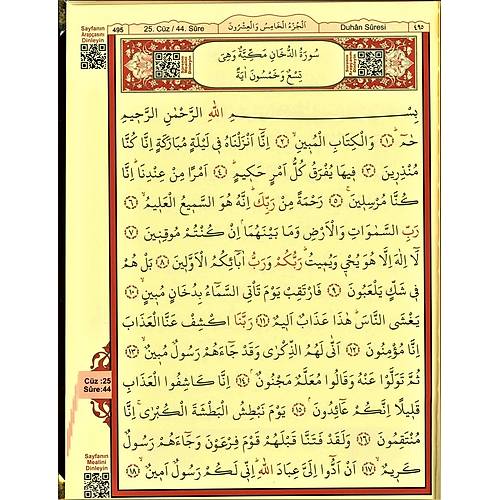 Sayfanın
Arapçasını
Dinleyin
495
25. Cüz / 44. Sûre
اَلْجُزْءُ الْخَامِسُ وَالْعِشْرُونَ
Duhân Sûresi
٤٩٥
سُورَةُ الدُّخَانِ مَكِّيَّةٌ وَهِيَ
تِسْعٌ وَخَمْسُونَ اٰيَةً
بِسْــــمِ اللّٰهِ الرَّحْمٰنِ الرَّحٖيمِ
حٰمٓ ﴿١﴾ وَالْكِتَابِ الْمُبٖينِ ﴿٢﴾ اِنَّٓا اَنْزَلْنَاهُ فٖي لَيْلَةٍ مُبَارَكَةٍ اِنَّا كُنَّا
مُنْذِرٖينَ ﴿٣﴾ فٖيهَا يُفْرَقُ كُلُّ اَمْرٍ حَكٖيمٍ ﴿٤﴾ اَمْرًا مِنْ عِنْدِنَا اِنَّا
كُنَّا مُرْسِلٖينَ ﴿٥﴾ رَحْمَةً مِنْ رَبِّكَ اِنَّهُ هُوَ السَّمٖيعُ الْعَلٖيمُ ﴿٦﴾
رَبِّ السَّمٰوَاتِ وَالْاَرْضِ وَمَا بَيْنَهُمَا اِنْ كُنْتُمْ مُوقِنٖينَ ﴿٧﴾
لَٓا اِلٰهَ اِلَّا هُوَ يُحْيٖ وَيُمٖيتُ رَبُّكُمْ وَرَبُّ اٰبَٓائِكُمُ الْاَوَّلٖينَ ﴿٨﴾ بَلْ هُمْ
فٖي شَكٍّ يَلْعَبُونَ ﴿٩﴾ فَارْتَقِبْ يَوْمَ تَأْتِي السَّمَٓاءُ بِدُخَانٍ مُبٖينٍ ﴿١٠﴾
يَغْشَى النَّاسَ هٰذَا عَذَابٌ اَلٖيمٌ ﴿١١﴾ رَبَّنَا اكْشِفْ عَنَّا الْعَذَابَ
اِنَّا مُؤْمِنُونَ ﴿١٢﴾ اَنّٰى لَهُمُ الذِّكْرٰى وَقَدْ جَٓاءَهُمْ رَسُولٌ مُبٖينٌ ﴿١٣﴾
ثُمَّ تَوَلَّوْا عَنْهُ وَقَالُوا مُعَلَّمٌ مَجْنُونٌ ﴿١٤﴾ اِنَّا كَاشِفُوا الْعَذَابِ
قَلٖيلًا اِنَّكُمْ عَٓائِدُونَ ﴿١٥﴾ يَوْمَ نَبْطِشُ الْبَطْشَةَ الْكُبْرٰى اِنَّا
مُنْتَقِمُونَ ﴿١٦﴾ وَلَقَدْ فَتَنَّا قَبْلَهُمْ قَوْمَ فِرْعَوْنَ وَجَٓاءَهُمْ رَسُولٌ
كَرٖيمٌ ﴿١٧﴾ اَنْ اَدُّٓوا اِلَيَّ عِبَادَ اللّٰهِ اِنّٖي لَكُمْ رَسُولٌ اَمٖينٌ ﴿١٨﴾
Cüz :25
Sûre:44
Sayfanın
Mealini
Dinleyin